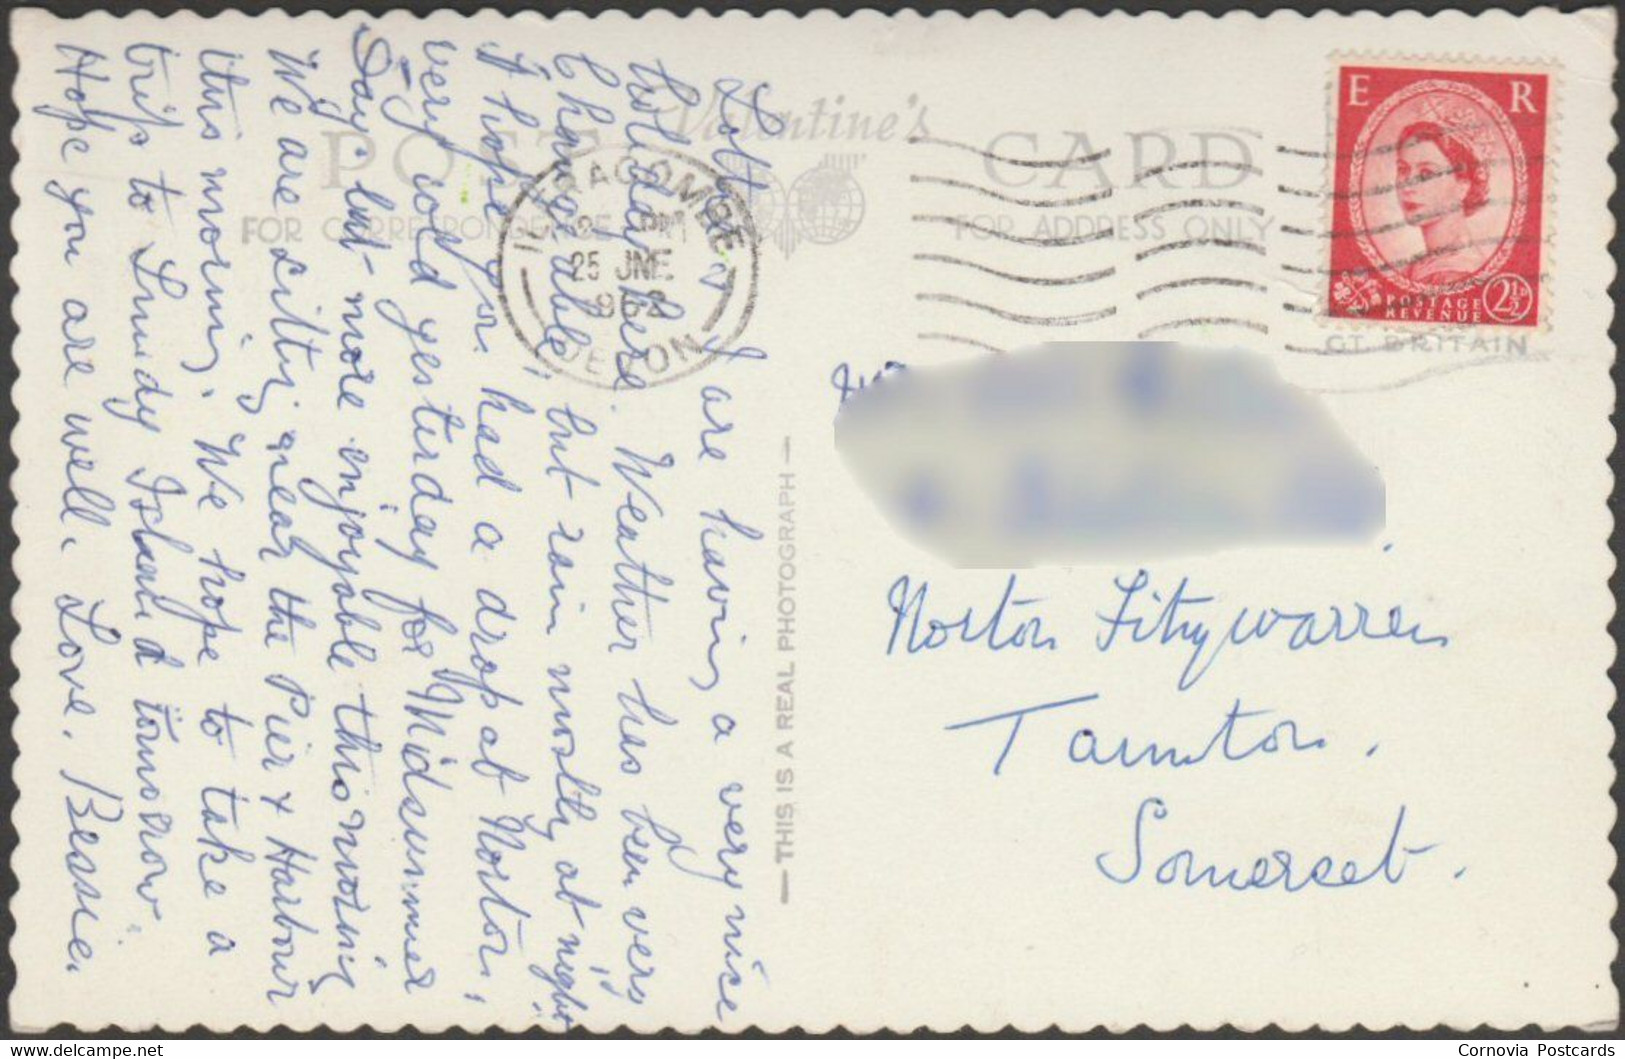 Valentine's
POST CARD
FOR CORRESPONDENCE FOR ADDRESS ONLY
ILFRACOMBE
PM
25 JNE
1962
DEVON
E R
POSTAGE
REVENUE
2½D
GT BRITAIN
— THIS IS A REAL PHOTOGRAPH —
& I are having a very nice
holiday here. Weather has been very
changeable, but rain mostly at night,
I hope you had a drop at Norton,
very cold yesterday for Midsummer
Day but more enjoyable this morning
We are sitting near the Pier & Harbour
this morning. We hope to take a
trip to Lundy Island tomorrow.
Hope you are well. Love. Bessie.
Norton Fitzwarren
Taunton.
Somerset.
Cornovia Postcards
www.delcampe.net